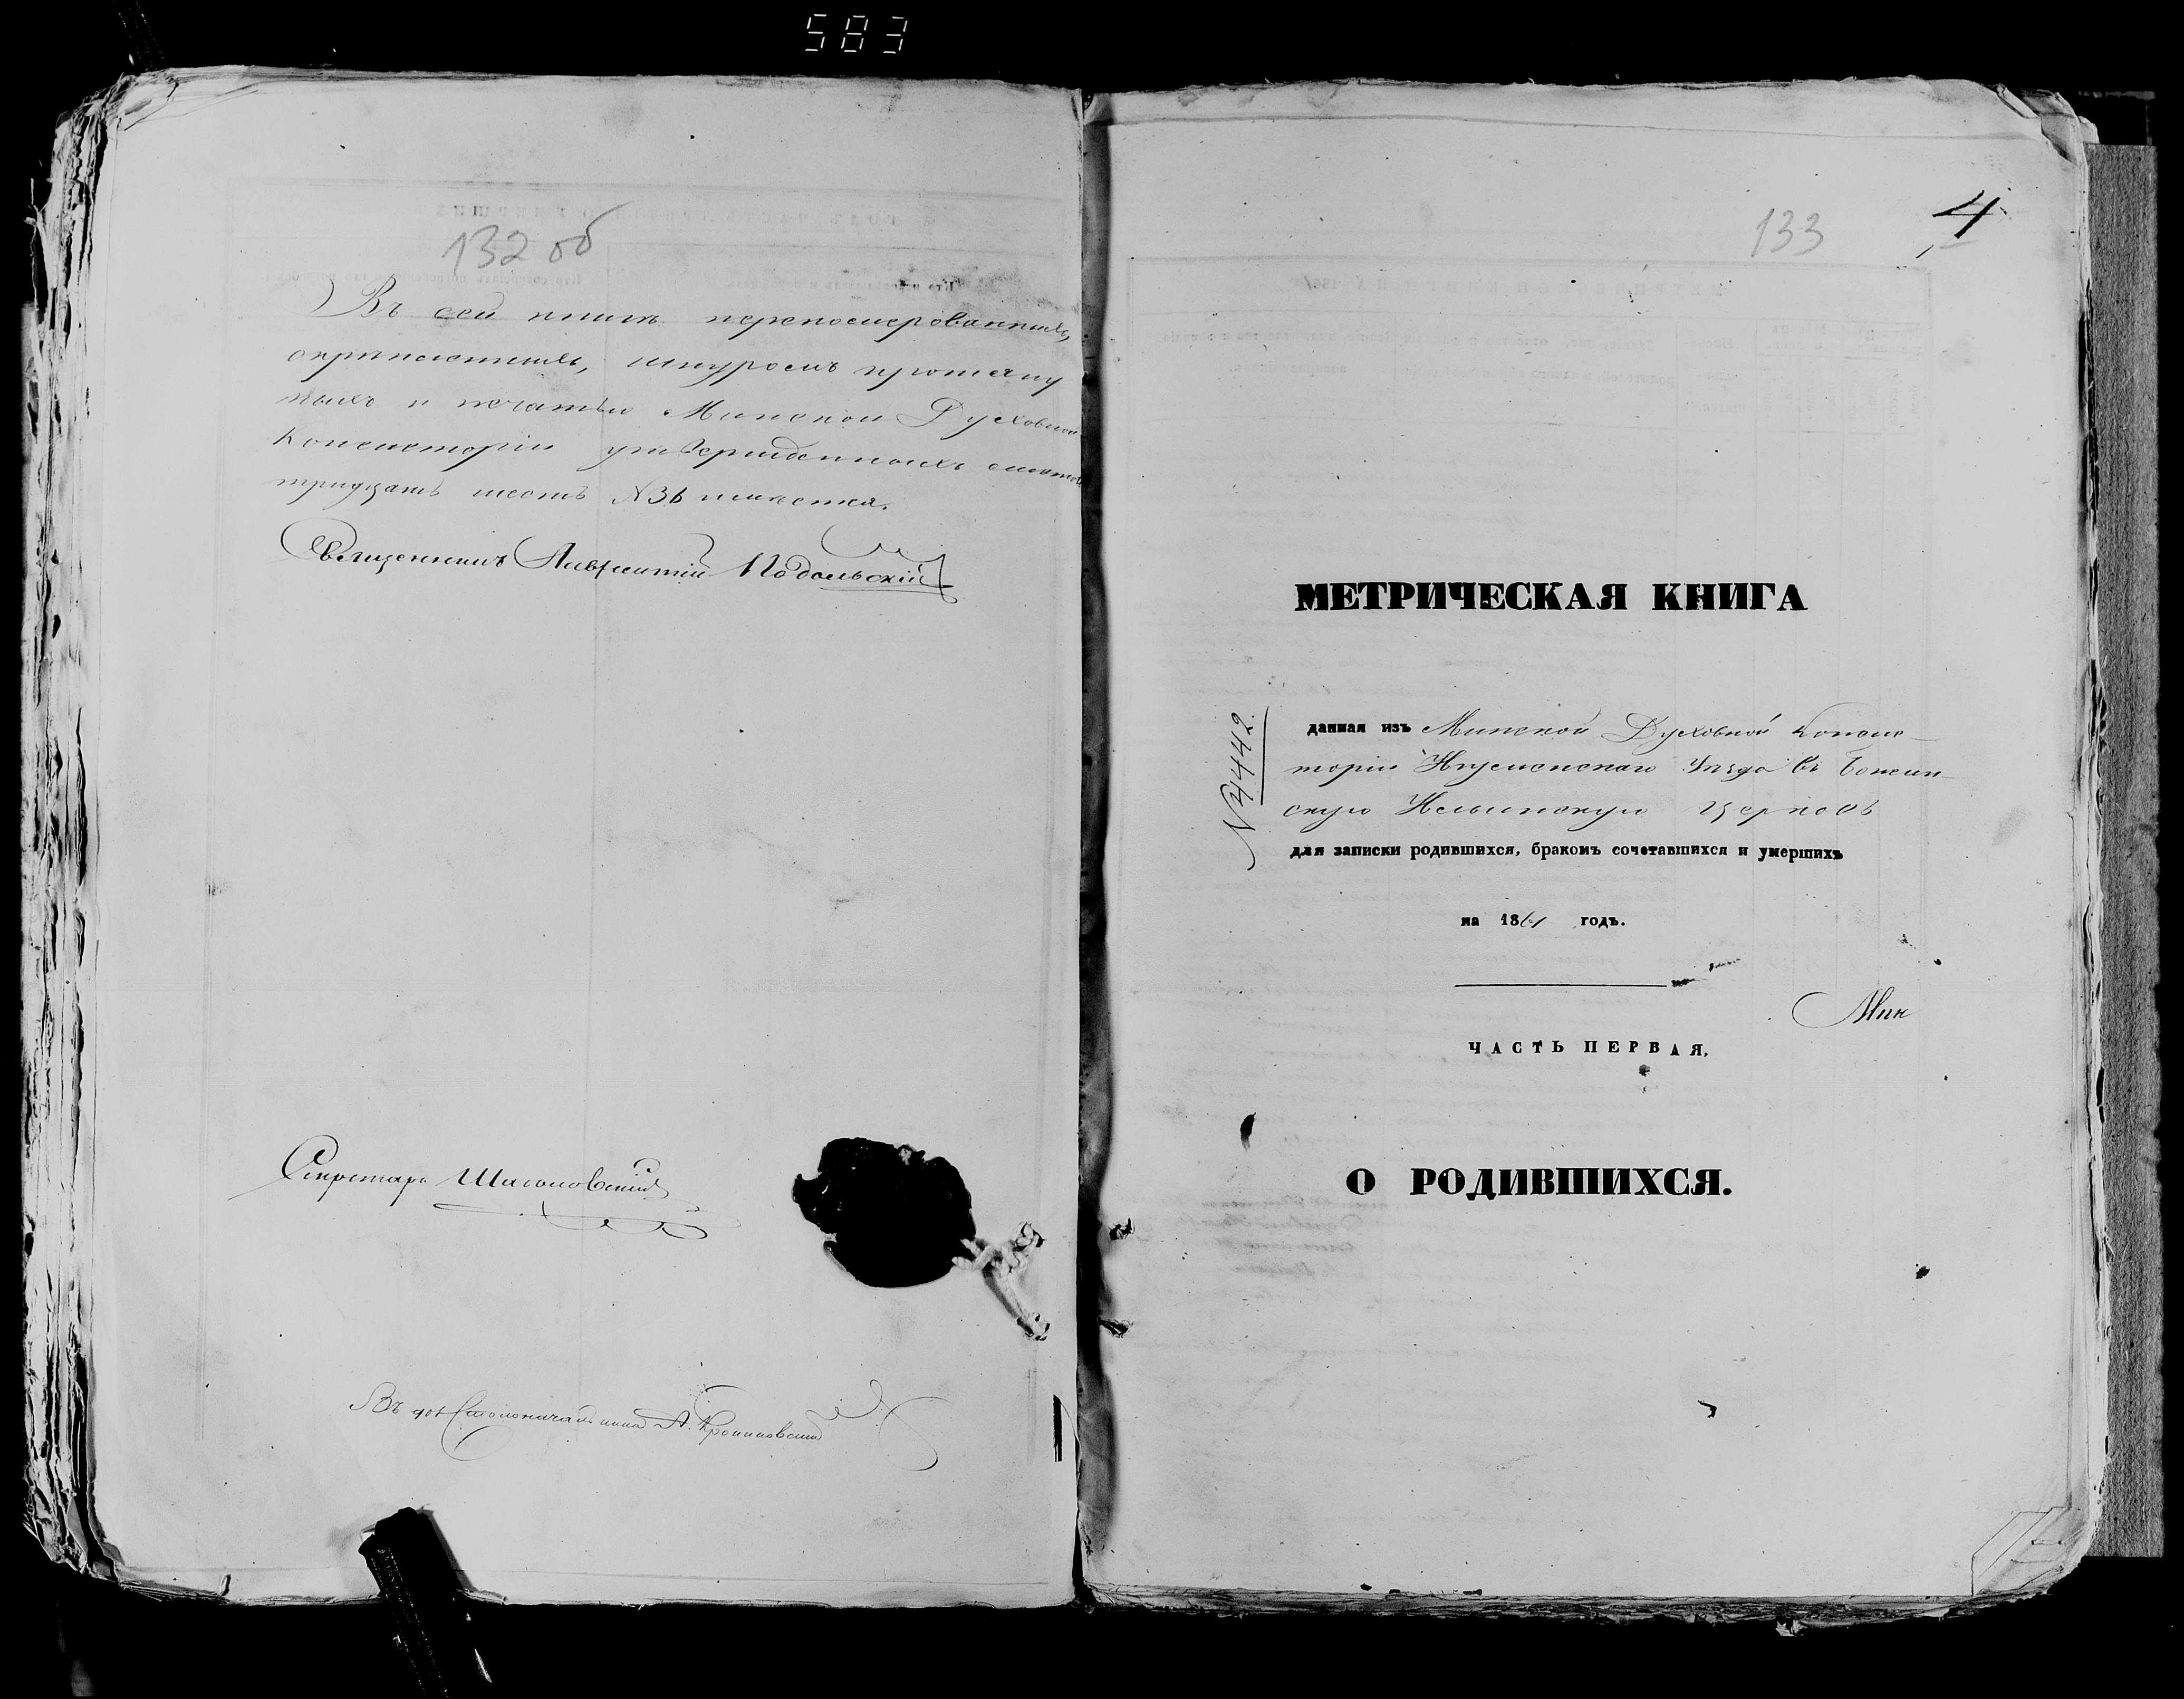 583
132 об
Въ сей книгѣ перенумерованныхъ,
скрѣпленныхъ, шнуромъ протяну
тыхъ и печатью Минской Духовной
Консисторіи утвержденныхъ листовъ
тридцать шесть №36 имѣется.
Священникъ Лаврентій Подольскій
Секретарь
Въ дол Столоначальника А.
133
4
МЕТРИЧЕСКАЯ КНИГА
№4442.
данная изъ Минской Духовной Консис-
торіи Игуменскаго Уѣзда въ
скую Ильинскую церковь
для записки родившихся, бракомъ сочетавшихся и умершихъ
на 1861 годъ.
Мин
ЧАСТЬ ПЕРВАЯ,
О РОДИВШИХСЯ.